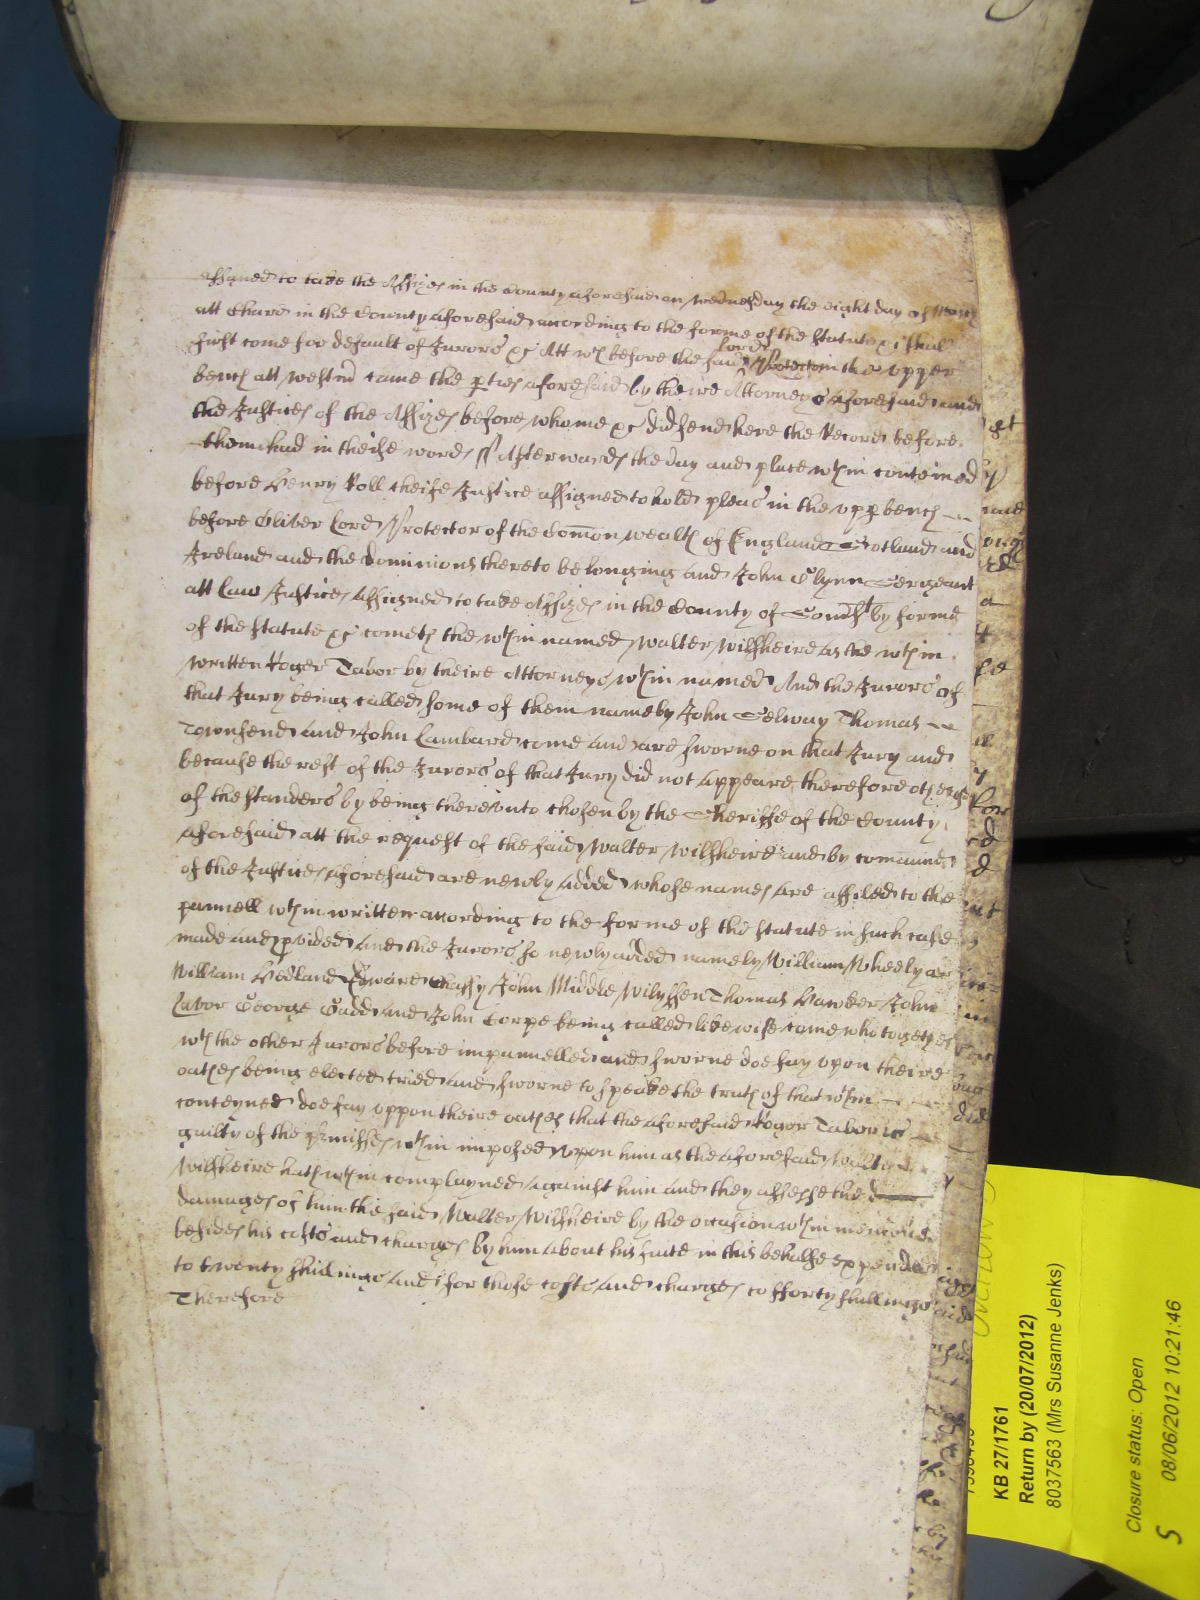 assigned to take the Assizes in the County aforesaid on wednesday the eight day of
att Chard in the County aforesaid according to the forme of the statute &c shal
first come for default of Jurors &c Att wch before the said lord Protector in the upper
bench att westmr came the pties aforesaid by theire Attorneys aforesaid and
the Justices of the Assizes before whome &c did send here the Record before
them had in theise words ss Afterwards the day and place wthin conteined
before Henry Roll cheife Justice assigned to hold pleas in the upp bench
before Oliver Lord Protector of the Comon wealth of England Scotland and
Ireland and the dominions thereto belonging and John Glynn Sergeant
att Law Justices assigned to take Assizes in the County of Somst by forme
of the statute &c cometh the wthin named Walter Wilsheire as the wthin
written Roger Tabor by theire Attorneys wthin named And the Jurors of
that Jury being called some of them namely John Selway Thomas
Townsend and John Lambard come and are sworne on that Jury and
because the rest of the Jurors of that Jury did not appeare therefore others
of the standers by being thereunto chosen by the Sheriffe of the County
aforesaid att the request of the said Walter Wilsheire and by comaund
of the Justices aforesaid are newly added whose names are affiled to the
pannell wthin written according to the forme of the statute in such case
made and pvided and the Jurors so newly added namely William Wheelyer
William Hedland Edward Chaffy John Middle Thomas Hawker John
Tabor George Gadd and John Corpe being called likewise came who together
wth the other Jurors before impannelled and sworne doe say upon theire
oathes being elected tried and sworne to speake the truth of that wthin
conteyned doe say uppon theire oathes that the aforesaid Roger Tabor is
guilty of the pmisses wthin imposed uppon him as the aforesaid Walter
Wilsheire hath wthin complayned against him and they assesse the d
damages of him the said Walter Wilsheire by the occasion wthin menconed
besides his costs and charges by him about his suite in this behalfe expended
to twenty shillings and for those costs and charges to fforty shillings
Therefore
KB 27/1761
Return by (20/07/2012)
8037563 (Mrs Susanne Jenks)
Closure status: Open
08/06/2012 10:21:46
S